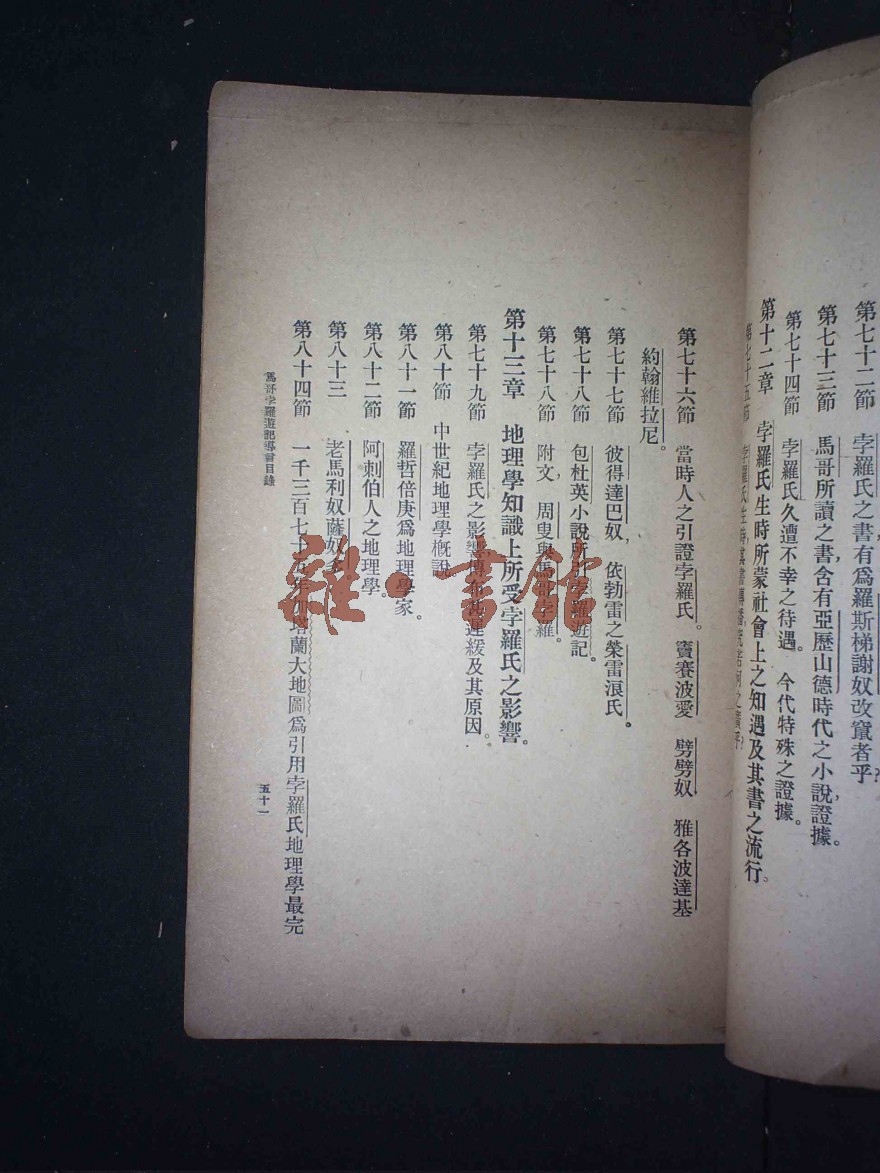 第七十二節　孛羅氏之書,有爲羅斯梯謝奴改竄者乎?
第七十三節　馬哥所讀之書含有亞歷山德時代之小說,證據。
第七十四節　孛羅氏久遭不幸之待遇。　今代特殊之證據。
第十二章　孛羅氏生時所蒙社會上之知遇及其書之流行。
第七十五節　孛羅氏生時,其書傳播
第七十六節　當時人之引證孛羅氏。　竇賽波愛　劈劈奴　雅各波達基
約翰維拉尼。
第七十七節　彼得達巴奴,　依勃雷之榮雷浪氏。
第七十八節　包杜英小說所引孛羅遊記。
第七十八節　附文,　周叟與馬哥孛羅。
第十三章　地理學知識上所受孛羅氏之影響。
第七十九節　孛羅氏之影響傳布祇遲緩及其原因。
第八十節　中世紀地理學槪說
第八十一節　羅哲倍庚爲地理學家。
第八十二節　阿剌伯人之地理學。
第八十三　老馬利奴薩奴多
第八十四節　一千三百七十五年加塔蘭大地圖爲引用孛羅氏地理學最完
馬哥孛羅遊記導言目錄
五十一
雜·書館